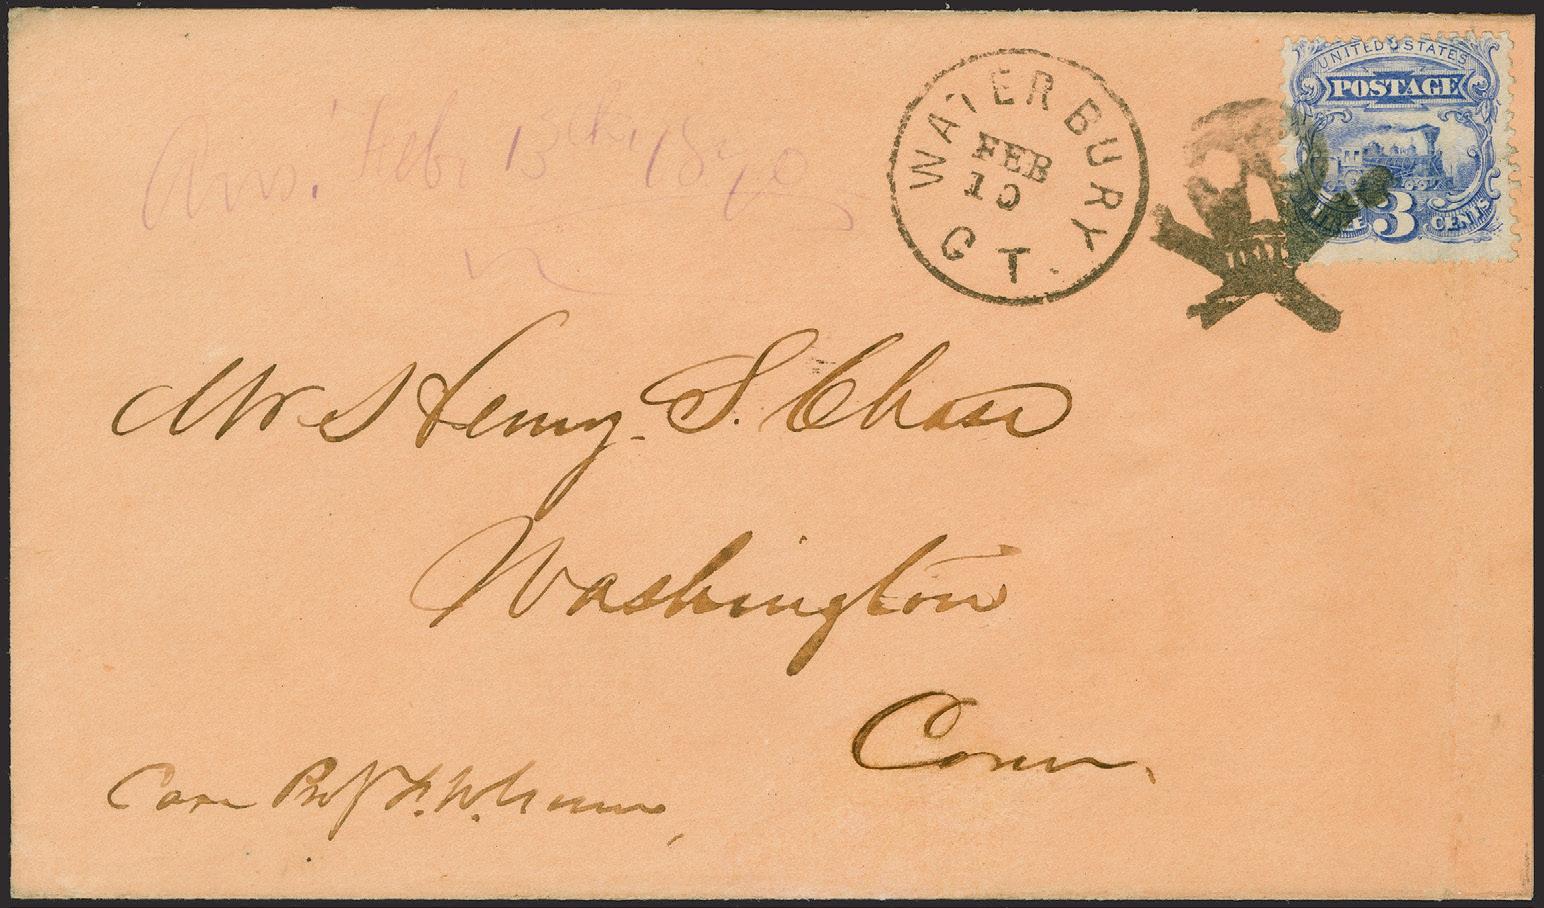 Ans. Feb. 13th/1870
WATERBURY
FEB
10
CT.
UNITED STATES
POSTAGE
THREE 3 CENTS
Mr Henry S. Chase
Washington
Conn.
Care Prof F. W.